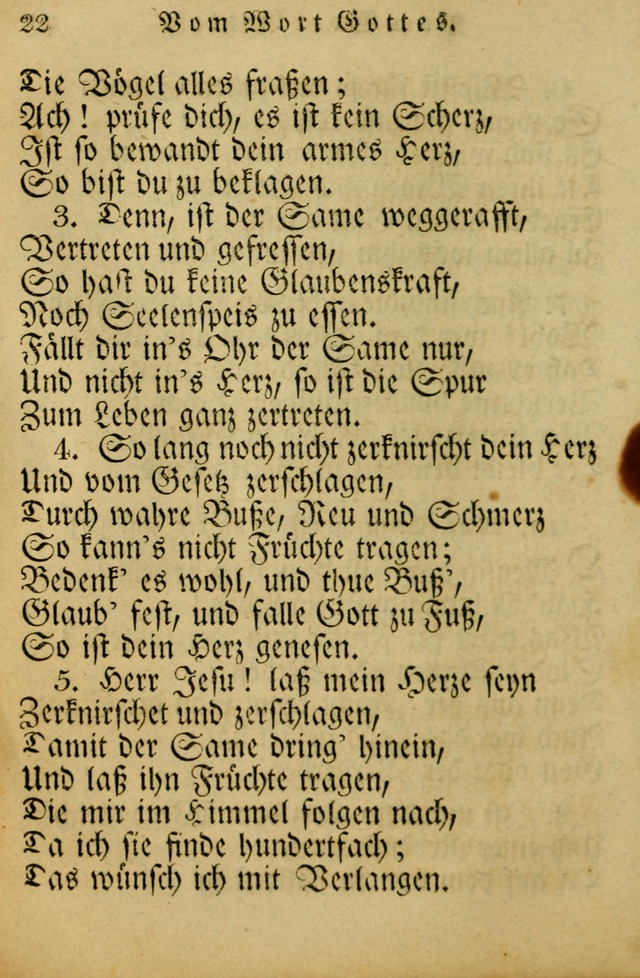 22 Vom Wort Gottes.
Die Vögel alles fraßen;
Ach! prüfe dich, es ist kein Scherz,
Ist so bewandt dein armes Herz,
So bist du zu beklagen.
3. Denn, ist der Same weggerafft,
Vertreten und gefressen,
So hast du keine Glaubenskraft,
Noch Seelenspeis zu essen.
Fällt dir in's Ohr der Same nur,
Und nicht in's Herz, so ist die Spur
Zum Leben ganz zertreten.
4. So lang noch nicht zerknirscht dein Herz
Und vom Gesetz zerschlagen,
Durch wahre Buße, Reu und Schmerz
So kann's nicht Früchte tragen;
Bedenk' es wohl, und thue Buß',
Glaub' fest, und falle Gott zu Fuß,
So ist dein Herz genesen.
5. Herr Jesu! laß mein Herze seyn
Zerknirschet und zerschlagen,
Damit der Same dring' hinein,
Und laß ihn Früchte tragen,
Die mir im Himmel folgen nach,
Da ich sie finde hundertfach;
Das wünsch ich mit Verlangen.